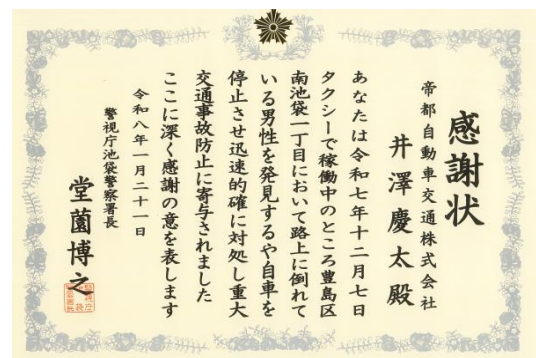 感謝状
帝都自動車交通株式会社
井澤慶太殿
あなたは令和七年十二月七日
タクシーで稼働中のところ豊島区
南池袋一丁目において路上に倒れて
いる男性を発見するや自車を
停止させ迅速的確に対処し重大
交通事故防止に寄与されました
ここに深く感謝の意を表します
令和八年一月二十一日
警視庁池袋警察署長
堂薗博之